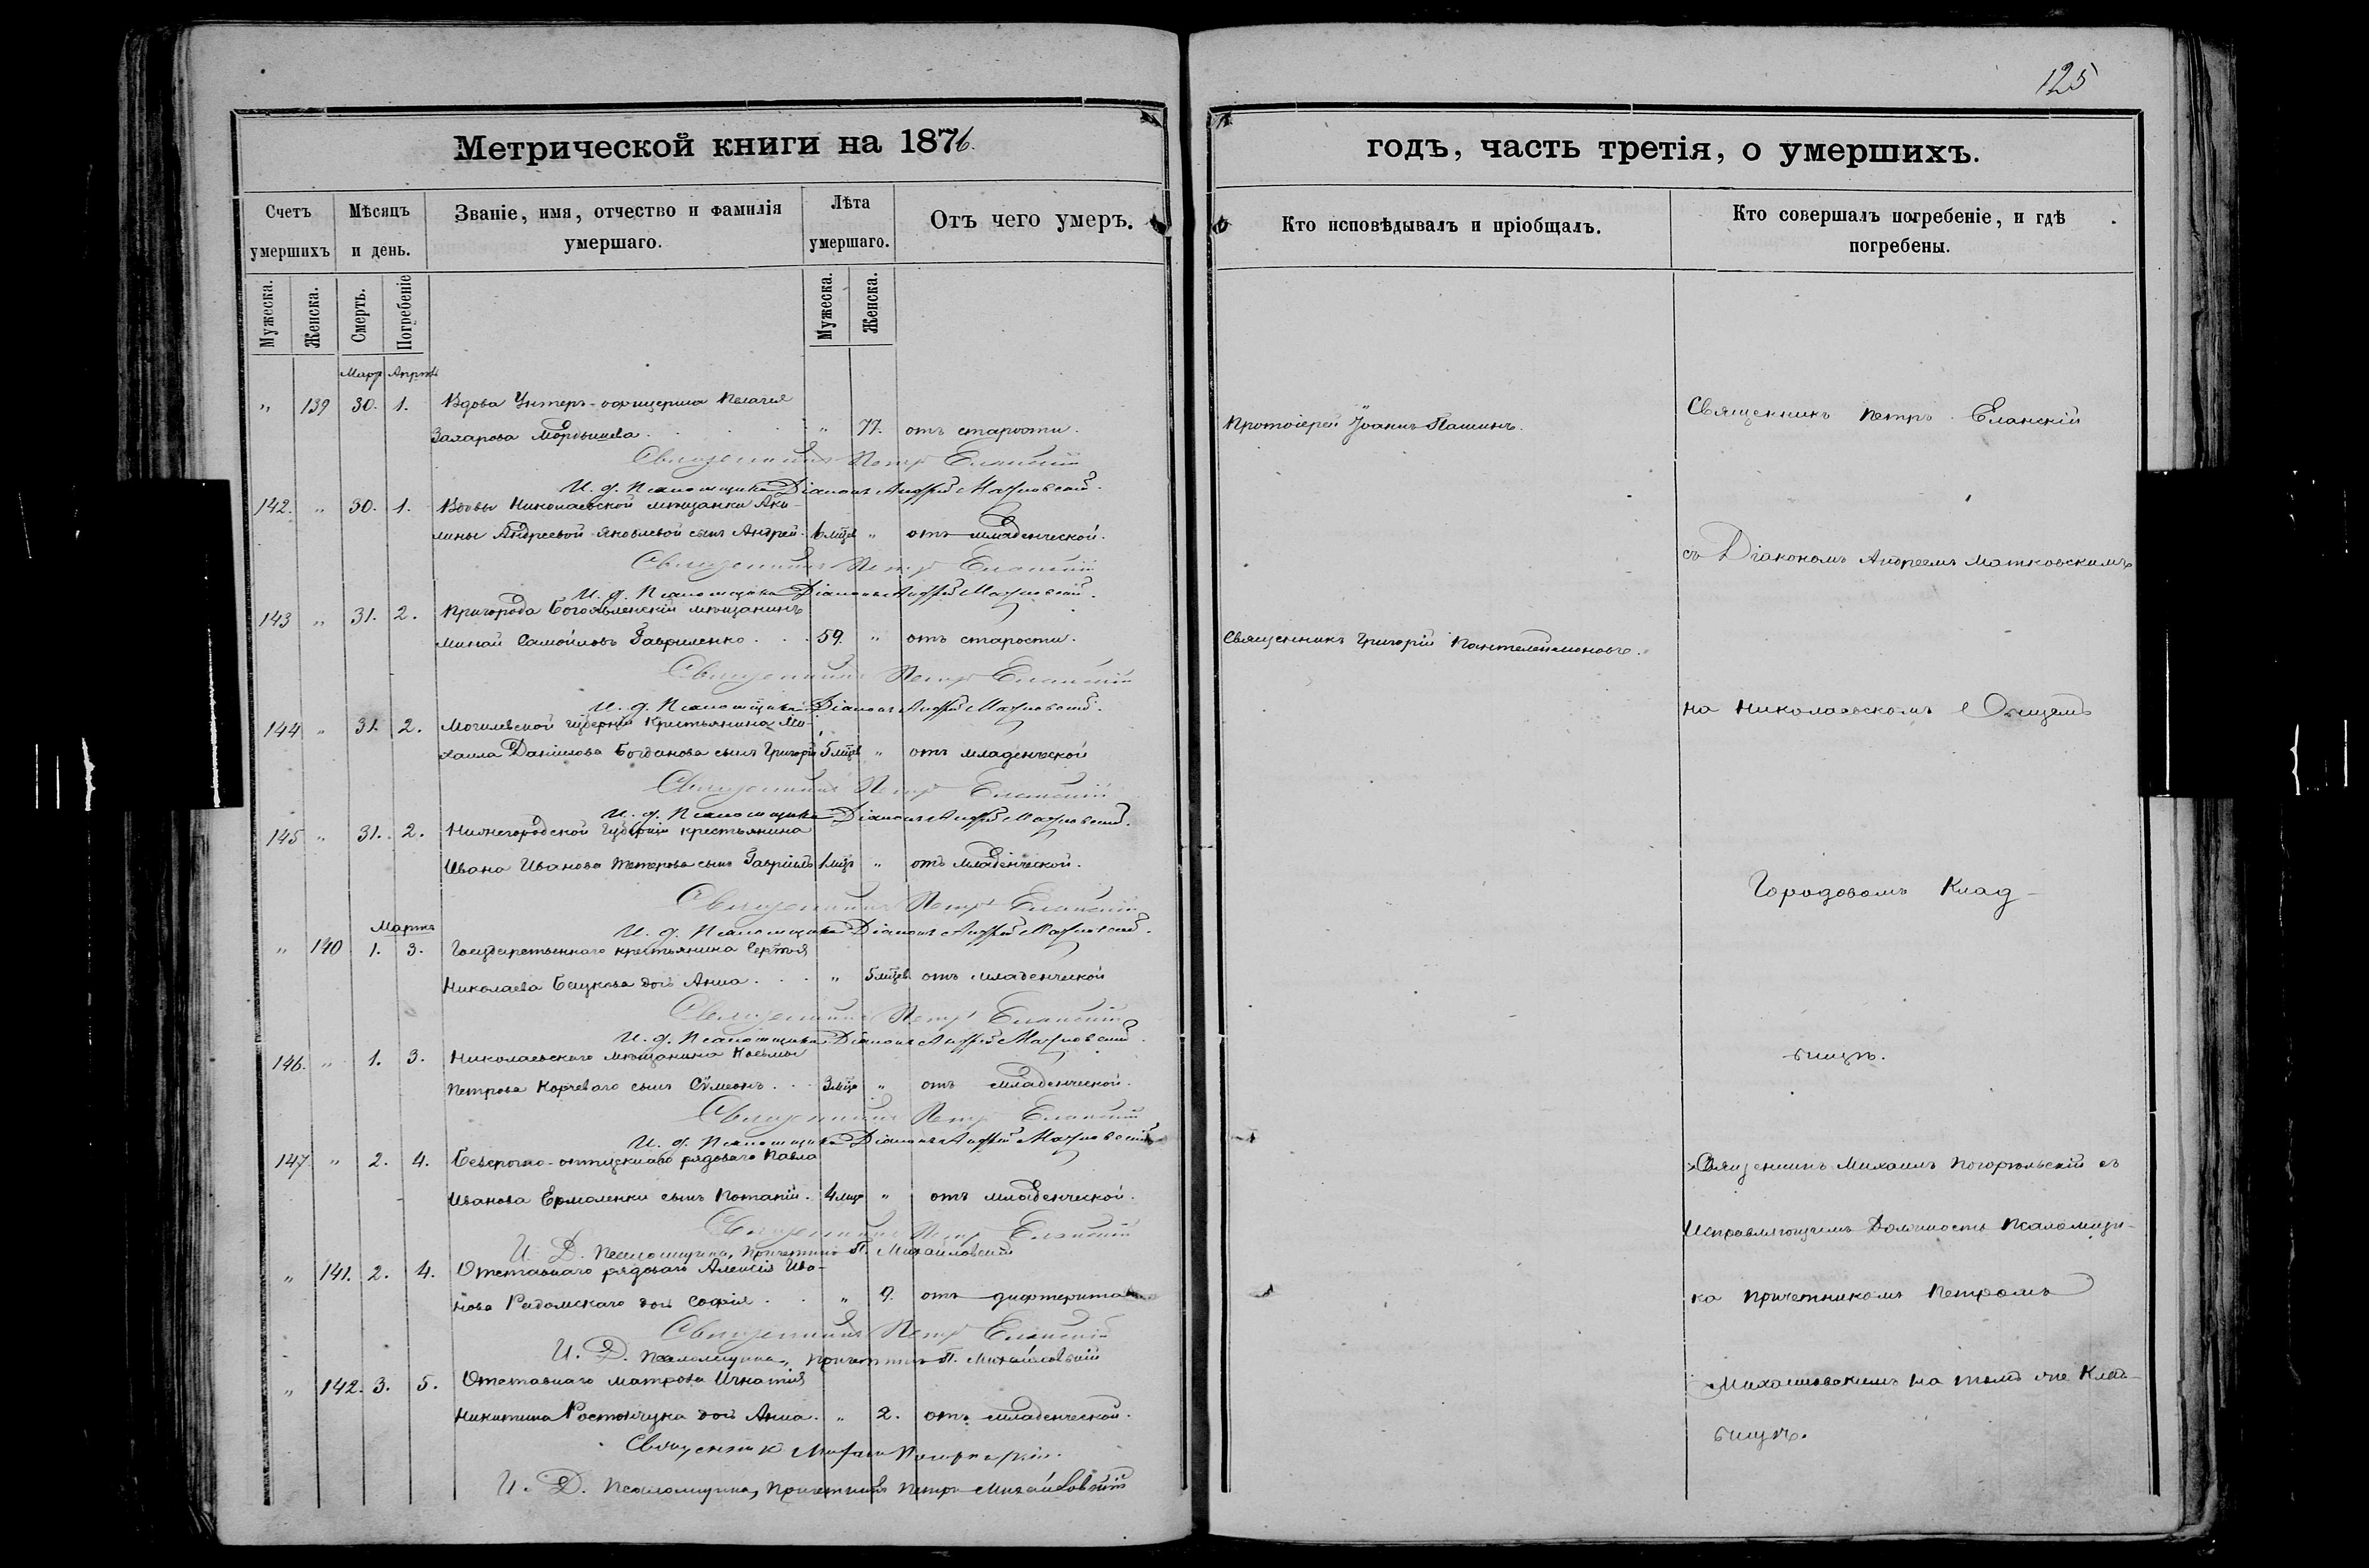 125
Метрической книги на 1876.
годъ, часть третія, о умершихъ.
Счетъ умершихъ
Мѣсяцъ и день.
Званіе, имя, отчество и фамилія умершаго.
Лѣта умершаго.
Отъ чего умеръ.
Кто исповѣдывалъ и пріобщалъ.
Кто совершалъ погребеніе, и гдѣ погребены.
Мужеска. Женска. Смерть. Погребеніе Мужеска. Женска.
Март Апрѣл
" 139 30. 1. Вдова Унтеръ-офицерша Пелагея
Захарова . " 77. отъ старости.
Протоіерей Іоаннъ Пашинъ.
Священникъ Петръ Еланскій
Священникъ Петръ Еланскій
И. д. Псаломщика Діаконъ Андрей Матковскій.
142. " 30. 1. Вдовы Николаевской мѣщанки Аку-
лины Андреевой Яковлевой сынъ Андрей. 6 мѣц " отъ младенческой.
съ Діакономъ Андреемъ Матковскимъ
Священникъ Петръ Еланскій
И. д. Псаломщика Діаконъ Андрей Матковскій.
143 " 31. 2. Пригорода Богоявленскій мѣщанинъ
Минай Самойловъ Гавриленко . . . 59. " отъ старости.
Священникъ Григорій Пантелеймоновъ.
Священникъ Петръ Еланскій
И. д. Псаломщика Діаконъ Андрей Матковскій.
на Николаевскомъ Общемъ
144 " 31. 2. Могилевской губерніи Крестьянина Ми-
хаила Данилова Богданова сынъ Григорій 5 мѣц " отъ младенческой
Священникъ Петръ Еланскій
И. д. Псаломщика Діаконъ Андрей Матковскій.
145 " 31. 2. Нижегородской Губерніи крестьянина
Ивана Иванова сынъ Гавріилъ 1 мѣц " отъ младенческой.
Городовомъ Клад-
Священникъ Петръ Еланскій
И. д. Псаломщика Діаконъ Андрей Матковскій.
Мартъ
" 140 1. 3. Государственнаго крестьянина Сергѣя
Николаева дочь Анна . . . " 5 мѣцев отъ младенческой
Священникъ Петръ Еланскій
И. д. Псаломщика Діаконъ Андрей Матковскій.
146. " 1. 3. Николаевскаго мѣщанина Косьмы
Петрова Корчеваго сынъ Сѵмеонъ . . . 3 мѣц " отъ младенческой.
бищѣ.
Священникъ Петръ Еланскій
И. д. Псаломщика Діаконъ Андрей Матковскій
147. " 2. 4. Безсрочно-отпускнаго рядоваго Павла
Иванова Ермоленки сынъ Потапій. 4 мѣц " отъ младенческой.
Священникъ Михаилъ Погорѣльскій съ
Священникъ Петръ Еланскій
И. Д. Псаломщика, Причетникъ П. Михайловскій
Исправляющимъ Должность Псаломщи-
" 141. 2. 4. Отставнаго рядоваго Алексія Ива-
нова Радомскаго дочь Софія . . " 9. отъ дифтерита
ка Причетникомъ Петромъ
Священникъ Петръ Еланскій
И. Д. Псаломщика, Причетникъ П. Михайловскій
" 142. 3. 5. Отставнаго матроса Игнатія
Никитина Ростовчука дочь Анна. " 2. отъ младенческой.
Михайловскимъ на томъ же Клад-
бищѣ.
Священникъ Михаилъ Погорѣльскій.
И. Д. Псаломщика, Причетникъ Петръ Михайловскій